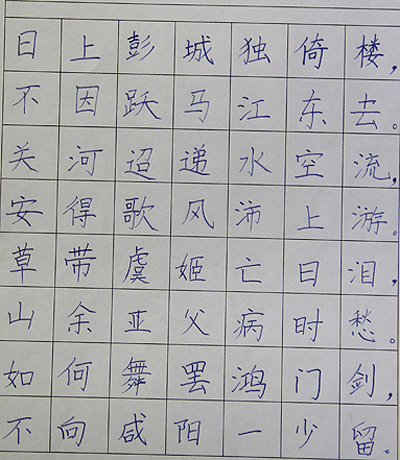 日上彭城独倚楼，
不因跃马江东去。
关河迢递水空流，
安得歌风沛上游。
草带虞姬亡日泪，
山余亚父病时愁。
如何舞罢鸿门剑，
不向咸阳一少留。